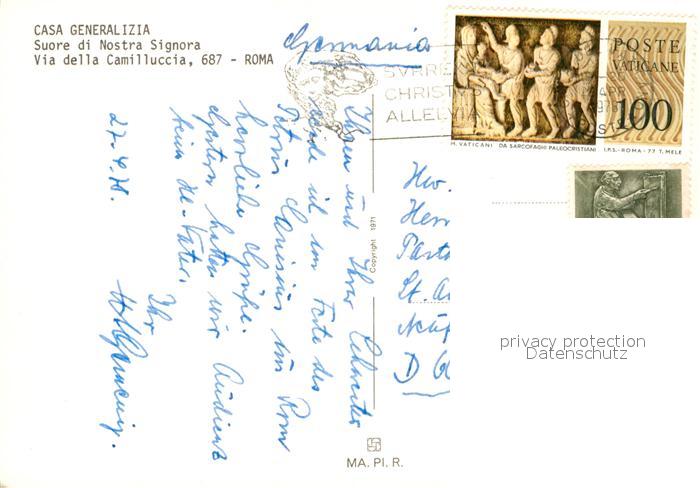 CASA GENERALIZIA
Suore di Nostra Signora
Via della Camilluccia, 687 - ROMA
Germania
SVRRE
CHRISTVS
ALLELVIA
POSTE
VATICANE
100
M. VATICANI DA SARCOFAGHI PALEOCRISTIANI I.P.S.-ROMA-77 T. MELE
Ihnen und Ihrer Schwester
sende ich am Feste des
Petrus Canisius aus Rom
herzliche Grüße.
Gestern hatten wir Audienz
beim Hl. Vater.
Ihr
27.4.78.
Copyright 1971
Hw.
Herr
St.
D
privacy protection
Datenschutz
MA. PI. R.